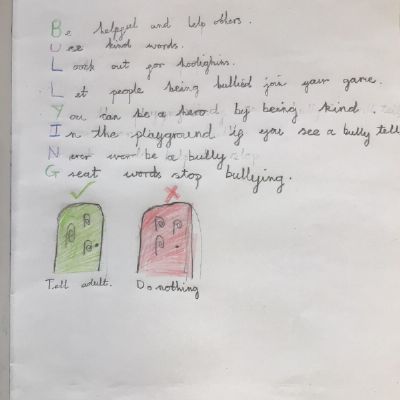 Be helpful and help others.
Use kind words.
Loock out for hooligins.
Let people being bullied join your game.
You can be a hero by being kind.
In the playground if you see a bully tell
Never be a bully
Great words stop bullying.
Tell adult. Do nothing